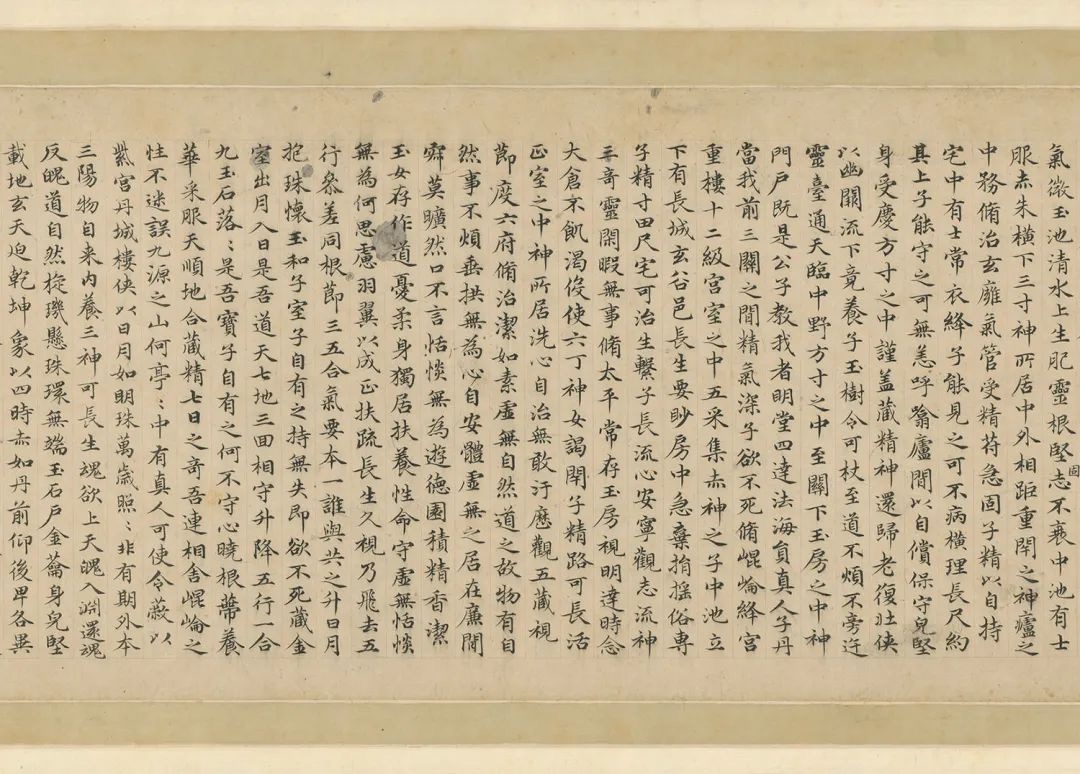 氣微玉池清水上生肥靈根堅志不衰中池有士
服赤朱橫下三寸神所居中外相距重閇之神廬之
中務脩治玄癰氣管受精苻急固子精以自持
宅中有士常衣絳子能見之可不病橫理長尺約
其上子能守之可無恙呼翕廬間以自償保守皃堅
身受慶方寸之中謹盖藏精神還歸老復壯俠
以幽闕流下竟養子玉樹令可杖至道不煩不旁迕
靈臺通天臨中野方寸之中至關下玉房之中神
門戶既是公子教我者明堂四達法海負真人子丹
當我前三關之間精氣深子欲不死脩崐崘絳宮
重樓十二級宮室之中五采集赤神之子中池立
下有長城玄谷邑長生要眇房中急棄捐搖俗専
子精寸田尺宅可治生繫子長流心安寧觀志流神
三奇靈閑暇無事脩太平常存玉房視明達時念
大倉不飢渴役使六丁神女謁閇子精路可長活
正室之中神所居洗心自治無敢汙歷觀五藏視
節度六府脩治潔如素虛無自然道之故物有自
然事不煩垂拱無為心自安體虛無之居在廉間
㪨莫曠然口不言恬惔無為遊德園積精香潔
玉女存作道憂柔身獨居扶養性命守虛無恬惔
無為何思慮羽翼以成正扶疏長生久視乃飛去五
行叅差同根節三五合氣要本一誰與共之升日月
抱珠懷玉和子室子自有之持無失即欲不死藏金
室出月入日是吾道天七地三回相守升降五行一合
九玉石落〻是吾寶子自有之何不守心曉根蔕養
華采服天順地合藏精七日之奇吾連相舎崐崘之
性不迷誤九源之山何亭〻中有真人可使令蔽以
紫宮丹城樓俠以日月如明珠萬歲照〻非有期外本
三陽物自来内養三神可長生魂欲上天魄入渊還魂
反魄道自然旋璣懸珠環無端玉石戶金蘥身皃堅
載地玄天迫乾坤象以四時赤如丹前仰後卑各異